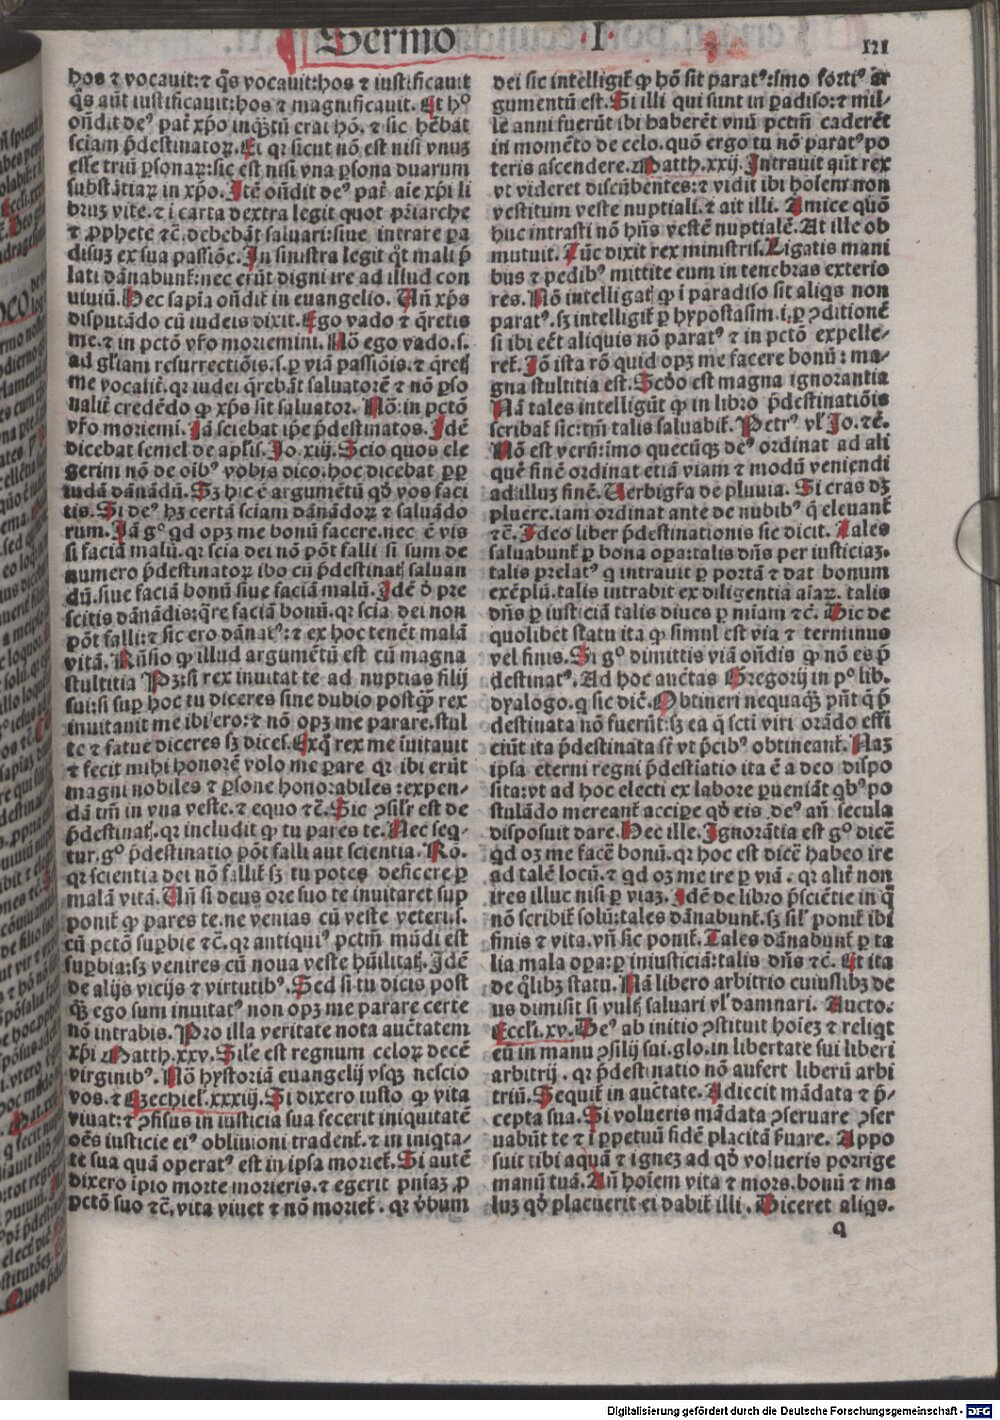 Sermo .I. 121
hos ⁊ vocauit:⁊ q̄s vocauit:hos ⁊ iustificauit
q̄s aūt iustificauit:hos ⁊ magnificauit. Et hº
oñdit deꝰ patꝫ xp̄o inq̄ꝫtū erat hō. ⁊ sic hēbat
sciam p̄destinatoꝝ. Et qꝛ sicut nō est nisi vnus
esse triū ꝑsonaꝝ:sic est nisi vna ꝑsona duarum
substātiaꝝ in xp̄o. Itē oñdit deꝰ patꝫ aīe xp̄i li
bruꝫ vite.⁊ i carta dextra legit quot pr̄iarche
⁊ ꝓphete ⁊c̄. debebāt saluari:siue intrare pa
disuꝫ ex sua passiōe. In sinistra legit qͦt mali p̄
lati dānabunt̄:nec erūt digni ire ad illud con
uiuiū. Hec sapīa oñdit in euangelio. Uñ xp̄s
disputādo cū iudeis dixit. Ego vado ⁊ q̄retis
me.⁊ in pctō vr̄o moriemini. Nō ego vado.s.
ad gl̄iam resurrectiōis.s.ꝑ viā passiōis.⁊ q̄retꝭ
me vocalit̄.qꝛ iudei q̄rebāt saluatorē ⁊ nō ꝑso
nalit̄ credēdo ꝙ xp̄s sit saluator. Nō: in pctō
vr̄o moriemī. Iā sciebat ip̄e p̄destinatos. Idē
dicebat semel de apl̄is. Jo.xiij. Scio quos ele
gerim nō de oībꝰ vobis dico.hoc dicebat ꝓꝑ
iudā dānādū. Sꝫ hic ē argumētū qð vos faci
tis. Si deꝰ hꝫ certā sciam dānādoꝝ ⁊ saluādo
rum. Iā gº qd opꝫ me bonū facere.nec ē vis
si faciā malū.qꝛ scīa dei nō pōt falli si sum de
numero p̄destinatoꝝ ibo cū p̄destinatꝭ saluan
dū.siue faciā bonū siue faciā malū. Idē ð pre
scitis dānādis:q̄re faciā bonū.qꝛ scīa dei non
pōt falli:⁊ sic ero dānatꝰ:⁊ ex hoc tenēt malā
vitā. Rn̄sio ꝙ illud argumētū est cū magna
stultitia Pꝫ:si rex inuitat te ad nuptias filij
sui:si suꝑ hoc tu diceres sine dubio postq̄ꝫ rex
inuitanit me ibi ero:⁊ nō opꝫ me parare.stul
te ⁊ fatue diceres sꝫ dices. Exq̄ rex me īuitauit
⁊ fecit mihi honorē volo me ꝑare qꝛ ibi erūt
magni nobiles ⁊ ꝑsone honorabiles:expen-
dā tm̄ in vna veste.⁊ equo ⁊c̄. Sic ↄsil̄r est de
p̄destinatꝭ.qꝛ includit ꝙ tu pares te. Nec seq̄-
tur.gº p̄destinatio pōt falli aut scientia. Rō.
qꝛ scientia dei nō fallit̄ sꝫ tu potes deficere ꝑ
malā vitā. Uñ si deus ore suo te inuitaret sup
ponit̄ ꝙ pares te.ne venias cū veste veteri.s.
cū pctō suꝑbie ⁊c̄.qꝛ antiquiꝰ pctm̄ mūdi est
suꝑbia:sꝫ venires cū noua veste hūilitatꝭ. Idē
de alijs vicijs ⁊ virtutibꝰ. Sed si tu dicis post
q̄ꝫ ego sum inuitatꝰ non opꝫ me parare certe
nō intrabis. Pro illa veritate nota auctatem
xp̄i Matth.xxv. Sil̄e est regnum celoꝝ decē
virginibꝰ. Nō hystoriā euangelij vsqꝫ nescio
vos.⁊ Ezechiel̄.xxxiij. Si dixero iusto ꝙ vita
viuat:⁊ ↄfisus in iusticia sua fecerit iniquitatē
oēs iusticie eiꝰ obliuioni tradent̄.⁊ in iniqta-
te sua quā operatꝰ est in ipsa moriet̄. Si autē
dixero īpio morte morieris.⁊ egerit pn̄iaꝫ ꝓ
pctō suo ⁊c̄.vita viuet ⁊ nō moriet̄. qꝛ v̄bum
dei sic intelligit̄ ꝙ hō sit paratꝰ:īmo fortiꝰ ar
gumentū est. Si illi qui sunt in ꝑadiso:⁊ mil-
le anni fuerūt ibi haberēt vnū pctm̄ caderēt
in momēto de celo.quō ergo tu nō paratꝰ po
teris ascendere. Matth.xxij. Intrauit aūt rex
vt videret discūbentes:⁊ vidit ibi hoīem non
vestitum veste nuptiali.⁊ ait illi. Amice quō
huc intrasti nō hn̄s vestē nuptialē. At ille ob
mutuit. Tūc dixit rex ministris. Ligatis mani
bus ⁊ pedibꝰ mittite eum in tenebras exterio
res. Nō intelligat̄ ꝙ i paradiso sit aliqs non
paratꝰ.sꝫ intelligit̄ ꝑ hypostasim.i.ꝑ ↄditionē
si ibi eēt aliquis nō paratꝰ ⁊ in pctō expelle-
ret̄. Iō ista rō quid opꝫ me facere bonū: ma-
gna stultitia est. Scðo est magna ignorantia
Nā tales intelligūt ꝙ in libro p̄destinatiōis
scribat̄ sic:tm̄ talis saluabit̄. Petrꝰ vl̄ Jo.⁊c̄.
Nō est verū:imo quecūqꝫ deꝰ ordinat ad ali
quē finē ordinat etiā viam ⁊ modū veniendi
ad illuꝫ finē. Uerbigr̄a de pluuia. Si cras dꝫ
pluere.iam ordinat ante de nubibꝰ q̄ eleuant̄
⁊c̄. Ideo liber p̄destinationis sic dicit. Tales
saluabunt̄ ꝑ bona oꝑa:talis dn̄s per iusticiaꝫ.
talis prelatꝰ q intrauit ꝑ portā ⁊ dat bonum
exēplū.talis intrabit ex diligentiā aīaꝝ. talis
dn̄s ꝑ iusticiā talis diues ꝑ mīam ⁊c̄. Sic de
quolibet statu ita ꝙ simul est via ⁊ terminus
vel finis. Si gº dimittis viā oñdis ꝙ nō es p̄
destinatꝰ. Ad hoc auctas Gregorij in pº lib.
dyalogo.q sic dic̄. Obtineri nequaq̄ꝫ pn̄t q̄ p̄
destinata nō fuerūt:sꝫ ea q̄ scti viri orādo effi
ciūt ita p̄destinata sī vt p̄cibꝰ obtineant̄. Naꝫ
ipsa eterni regni p̄destīatio ita ē a deo dispo
sita:vt ad hoc electi ex labore ꝑueniāt qbꝰ po
stulādo mereant̄ accipe qð eis deꝰ añ secula
disposuit dare. Hec ille. Ignorātia est gº dicē
qd oꝫ me facē bonū.qꝛ hoc est dicē habeo ire
ad talē locū.⁊ qd oꝫ me ire ꝑ viā. qꝛ alit̄ non
ires illuc nisi ꝑ viaꝫ. Idē de libro p̄sciētie in q̄
nō scribit̄ solū:tales dānabunt̄.sꝫ sil̄r ponit̄ ibi
finis ⁊ vita.vn̄ sic ponit̄. Tales dānabunt̄ ꝑ ta
lia mala oꝑa:ꝑ iniusticiā:talis dn̄s ⁊c̄. Et ita
de q̄libꝫ statu. Nā libero arbitrio cuiuslibꝫ de
us dimisit si vultꝭ saluari vl̄ damnari. Aucto.
Eccl̄i.xv. Deꝰ ab initio ↄstituit hoīeꝫ ⁊ reliqt
eū in manu ↄsilij sui.glo.in libertate sui liberi
arbitrij. qꝛ p̄destinatio nō aufert liberū arbi
triū. Sequit̄ in auctate. Adiecit mādata ⁊ p̄
cepta sua. Si volueris mādata ↄseruare ↄser
uabūt te ⁊ i ꝑpetuū fidē placitā fuare. Appo
suit tibi aquā ⁊ igneꝫ ad qð volueris porrige
manū tuā. Añ hoīem vita ⁊ mors.bonū ⁊ ma
luꝫ qð placuerit ei dabit̄ illi. Diceret aliqs.
q
Digitalisierung gefördert durch die Deutsche Forschungsgemeinschaft - DFG